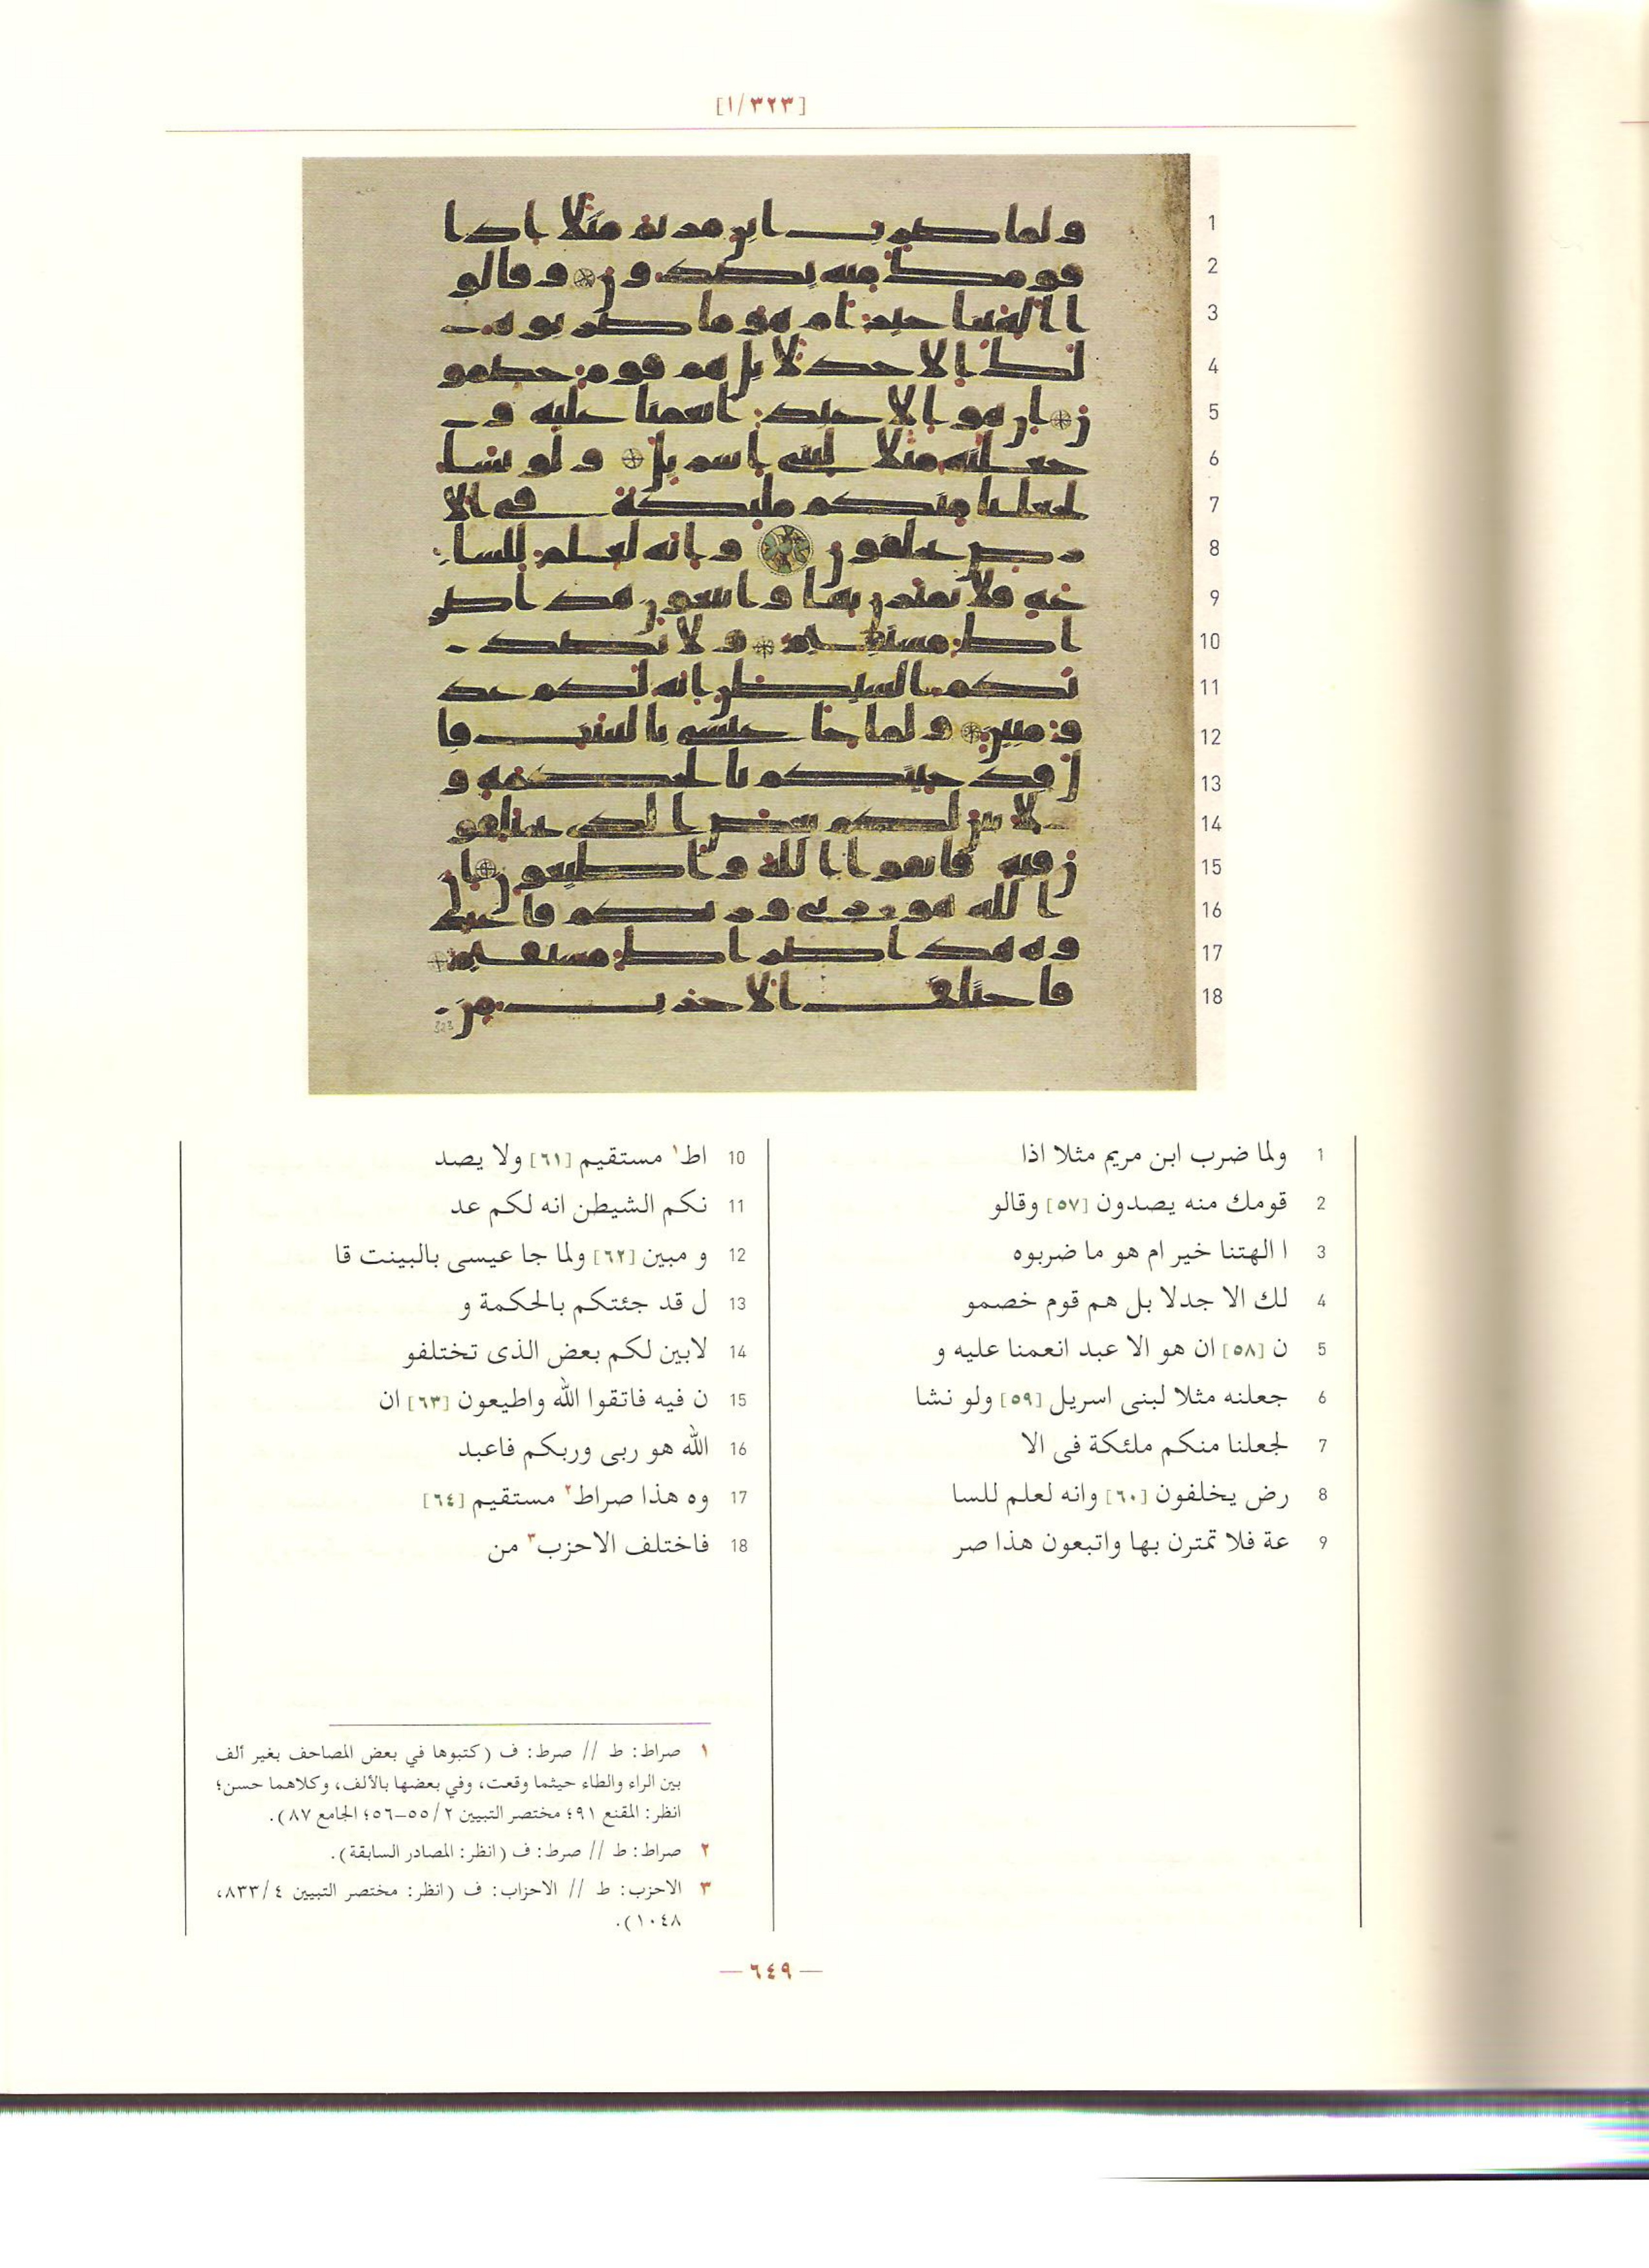 [١/٣٢٣]
1 ولما ضرب ابن مريم مثلا اذا
2 قومك منه يصدون [٥٧] وقالو
3 ا الهتنا خير ام هو ما ضربوه
4 لك الا جدلا بل هم قوم خصمو
5 ن [٥٨] ان هو الا عبد انعمنا عليه و
6 جعلنه مثلا لبنى اسريل [٥٩] ولو نشا
7 لجعلنا منكم ملئكة فى الا
8 رض يخلفون [٦٠] وانه لعلم للسا
9 عة فلا تمترن بها واتبعون هذا صر
10 اط١ مستقيم [٦١] ولا يصد
11 نكم الشيطن انه لكم عد
12 و مبين [٦٢] ولما جا عيسى بالبينت قا
13 ل قد جئتكم بالحكمة و
14 لابين لكم بعض الذى تختلفو
15 ن فيه فاتقوا الله واطيعون [٦٣] ان
16 الله هو ربى وربكم فاعبد
17 وه هذا صراط٢ مستقيم [٦٤]
18 فاختلف الاحزب٣ من
١ صراط: ط // صرط: ف (كتبوها في بعض المصاحف بغير ألف
بين الراء والطاء حيثما وقعت، وفي بعضها بالألف، وكلاهما حسن؛
انظر: المقنع ٩١؛ مختصر التبيين ٢/ ٥٥–٥٦؛ الجامع ٨٧).
٢ صراط: ط // صرط: ف (انظر: المصادر السابقة).
٣ الاحزب: ط // الاحزاب: ف (انظر: مختصر التبيين ٤/ ٨٣٣،
١٠٤٨).
— ٦٤٩ —